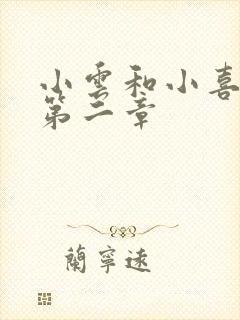 小雲和小喜
第二章
蘭寧遠